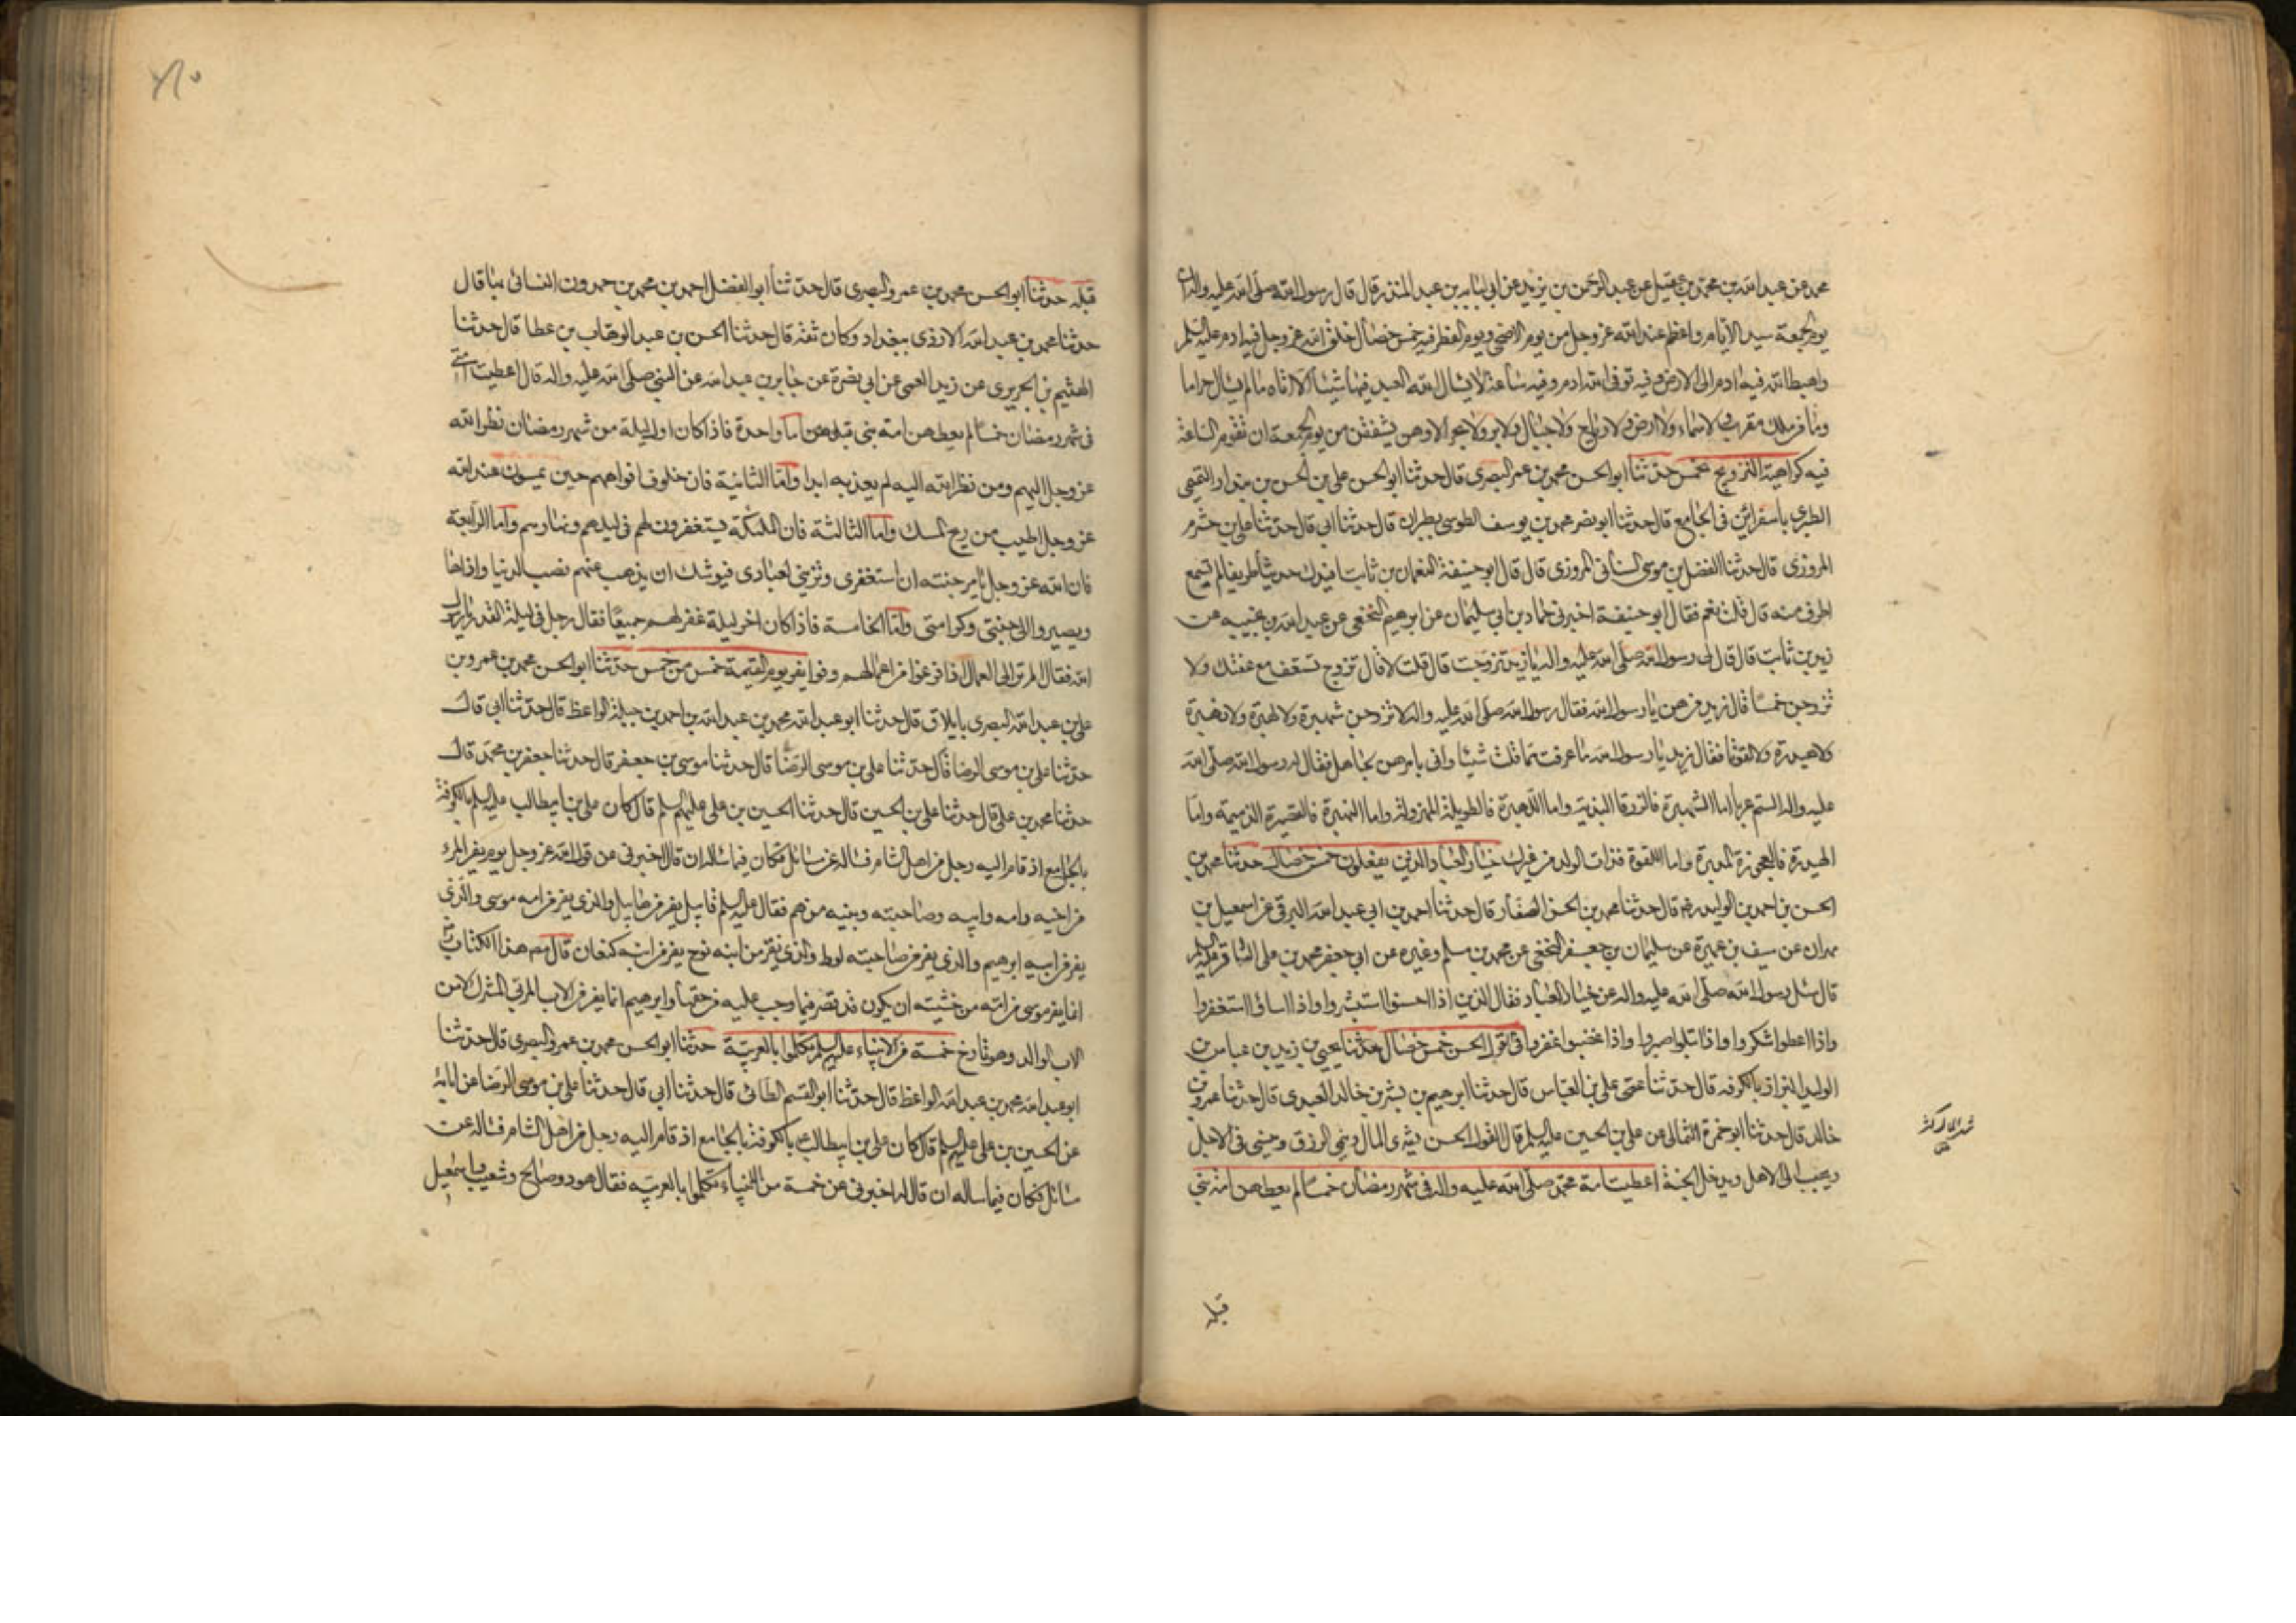 محمد عن عبد الله بن محمد بن عقيل عن عبد الرحمن بن يزيد عن ابي لبابه بن عبد المنذر قال قال رسول الله صلى الله عليه واله ان
يوم الجمعة سيد الأيام واعظم عند الله عز وجل من يوم الاضحى ويوم الفطر فيه خمس خصال خلق الله عز وجل فيه ادم عليه السلم
واهبط الله فيه ادم الى الارض وفيه توفى الله ادم وفيه ساعة لا يسال الله العبد فيها شيئا الا اتاه ما لم يسال حراما
وما من ملك مقرب ولا سماء ولا ارض ولا رياح ولا جبال ولا بر ولا بحر الا وهن يشفقن من يوم الجمعة ان تقوم الساعة
فيه كراهية التزويج بخمس حدثنا ابو الحسن محمد بن عمر البصرى قال حدثنا ابو الحسن على بن الحسن بن بندار التميمى
الطبرى باسفراين فى الجامع قال حدثنا ابو نصر محمد بن يوسف الطوسى بطبران قال حدثنا ابى قال حدثنا على بن خشرم
المروزى قال حدثنا الفضل بن موسى السنانى المروزى قال قال ابو حنيفة النعمان بن ثابت افيدك حديثا طريفا لم تسمع
اطرف منه قال قلت نعم فقال ابو حنيفة اخبرنى حماد بن ابى سليمان عن ابرهيم النخعى عن عبد الله بن عن
زيد بن ثابت قال قال لى رسول الله صلى الله عليه واله يا زيد تزوجت قال قلت لا قال تزوج تستعف مع عفتك ولا
تزوجن خمسا قال زيد من هن يا رسول الله فقال رسول الله صلى الله عليه واله لا تزوجن شهبرة ولا لهبرة ولا نهبرة
ولا هيدرة ولا لفوتا فقال زيد يا رسول الله ما عرفت مما قلت شيئا وانى بامرهن لجاهل فقال له رسول الله صلى الله
عليه واله الستم عربا اما الشهبرة فالزرقا البذية واما اللهبرة فالطويلة المهزولة واما النهبرة فالقصيرة الذميمة واما
الهيدرة فالعجوزة المدبرة واما اللفوة فذات الولد من غيرك خيار العباد الذين يفعلون خمس خصال حدثنا محمد بن
الحسن بن احمد بن الوليد رضه قال حدثنا محمد بن الحسن الصفار قال حدثنا احمد بن ابى عبد الله البرقى عن اسمعيل بن
مهران عن سيف بن عميرة عن سليمان بن جعفر النخعى عن محمد بن مسلم وغيره عن ابى جعفر محمد بن على الباقر عليه السلم
قال سئل رسول الله صلى الله عليه واله عن خيار العباد فقال الذين اذا احسنوا استبشروا واذا اساؤا استغفروا
واذا اعطوا شكروا واذا ابتلوا صبروا واذا غضبوا غفروا فى القول الحسن خمس خصال حدثنا يحيى بن زيد بن عباس بن
الوليد البزاز بالكوفه قال حدثنا عمى على بن العباس قال حدثنا ابرهيم بن بشر بن خالد العبدى قال حدثنا عمرو بن
خالد قال حدثنا ابو حمزة الثمالى عن على بن الحسين عليه السلم قال القول الحسن يثرى المال وينمى الرزق وينسى فى الاجل
ويحبب الى الاهل ويدخل الجنة اعطيت امة محمد صلى الله عليه واله فى شهر رمضان خمسا لم يعطهن امة نبى
قبله
قبله حدثنا ابو الحسن محمد بن عمرو البصرى قال حدثنا ابو الفضل احمد بن محمد بن حمدون النسائى بها قال
حدثنا محمد بن عبد الله الازدى ببغداد وكان ثقة قال حدثنا الحسن بن عبد الوهاب بن عطا قال حدثنا
الهثيم بن الحريرى عن زيد العمى عن ابى نضرة عن جابر بن عبد الله عن النبى صلى الله عليه واله قال اعطيت امتى
فى شهر رمضان خمسا لم يعطهن امة نبى قبلى اما واحدة فاذا كان اول ليلة من شهر رمضان نظر الله
عز وجل اليهم ومن نظر الله اليه لم يعذبه ابدا واما الثانية فان خلوف افواههم حين يمسون عند الله
عز وجل اطيب من ريح المسك واما الثالثة فان الملئكة يستغفرون لهم فى ليلهم ونهارهم واما الرابعة
فان الله عز وجل يامر جنته ان استغفرى وتزينى لعبادى فيوشك ان يذهب عنهم نصب الدنيا واذاها
ويصيروا الى جنتى وكرامتى واما الخامسة فاذا كان اخر ليلة غفر لهم جميعا فقال رجل فى ليلة القدر يا رسول
الله فقال الم تر الى العمال اذا فرغوا من اعمالهم وفوا يفر يوم القيمة خمس من خمس حدثنا ابو الحسن محمد بن عمرو بن
على بن عبد الله البصرى بايلاق قال حدثنا ابو عبد الله محمد بن عبد الله بن احمد بن جبلة الواعظ قال حدثنا ابى قال
حدثنا على بن موسى الرضا قال حدثنا على بن موسى الرضا قال حدثنا موسى بن جعفر قال حدثنا جعفر بن محمد قال
حدثنا محمد بن على قال حدثنا على بن الحسين قال حدثنا الحسين بن على عليهم السلم قال كان على بن ابيطالب عليه السلم بالكوفة
بالجامع اذ قام اليه رجل من اهل الشام فساله عن مسائل فكان فيما ساله ان قال اخبرنى عن قول الله عز وجل يوم يفر المرء
من اخيه وامه وابيه وصاحبته وبنيه من هم فقال عليه السلم قابيل يفر من هابيل والذى يفر من امه موسى والذى
يفر من ابيه ابرهيم والذى يفر من صاحبته لوط والذى يفر من ابنه نوح يفر من ابنه كنعان قال مصنف هذا الكتاب
انما يفر موسى من امه من خشيته ان يكون قد قصر فيما وجب عليه من حقها وابرهيم انما يفر من الاب المربى المشرك لا من
الاب الوالد وهو تارخ خمسة من الانبياء عليهم السلم تكلموا بالعربية حدثنا ابو الحسن محمد بن عمرو البصرى قال حدثنا
ابو عبد الله محمد بن عبد الله الواعظ قال حدثنا ابو القسم الطائى قال حدثنا ابى قال حدثنا على بن موسى الرضا عن ابائه
عن الحسين بن على عليهم السلم قال كان على بن ابيطالب بالكوفة بالجامع اذ قام اليه رجل من اهل الشام فساله عن
مسائل فكان فيما ساله ان قال له اخبرنى عن خمسة من الانبياء تكلموا بالعربيه فقال هود وصالح وشعيب واسمعيل